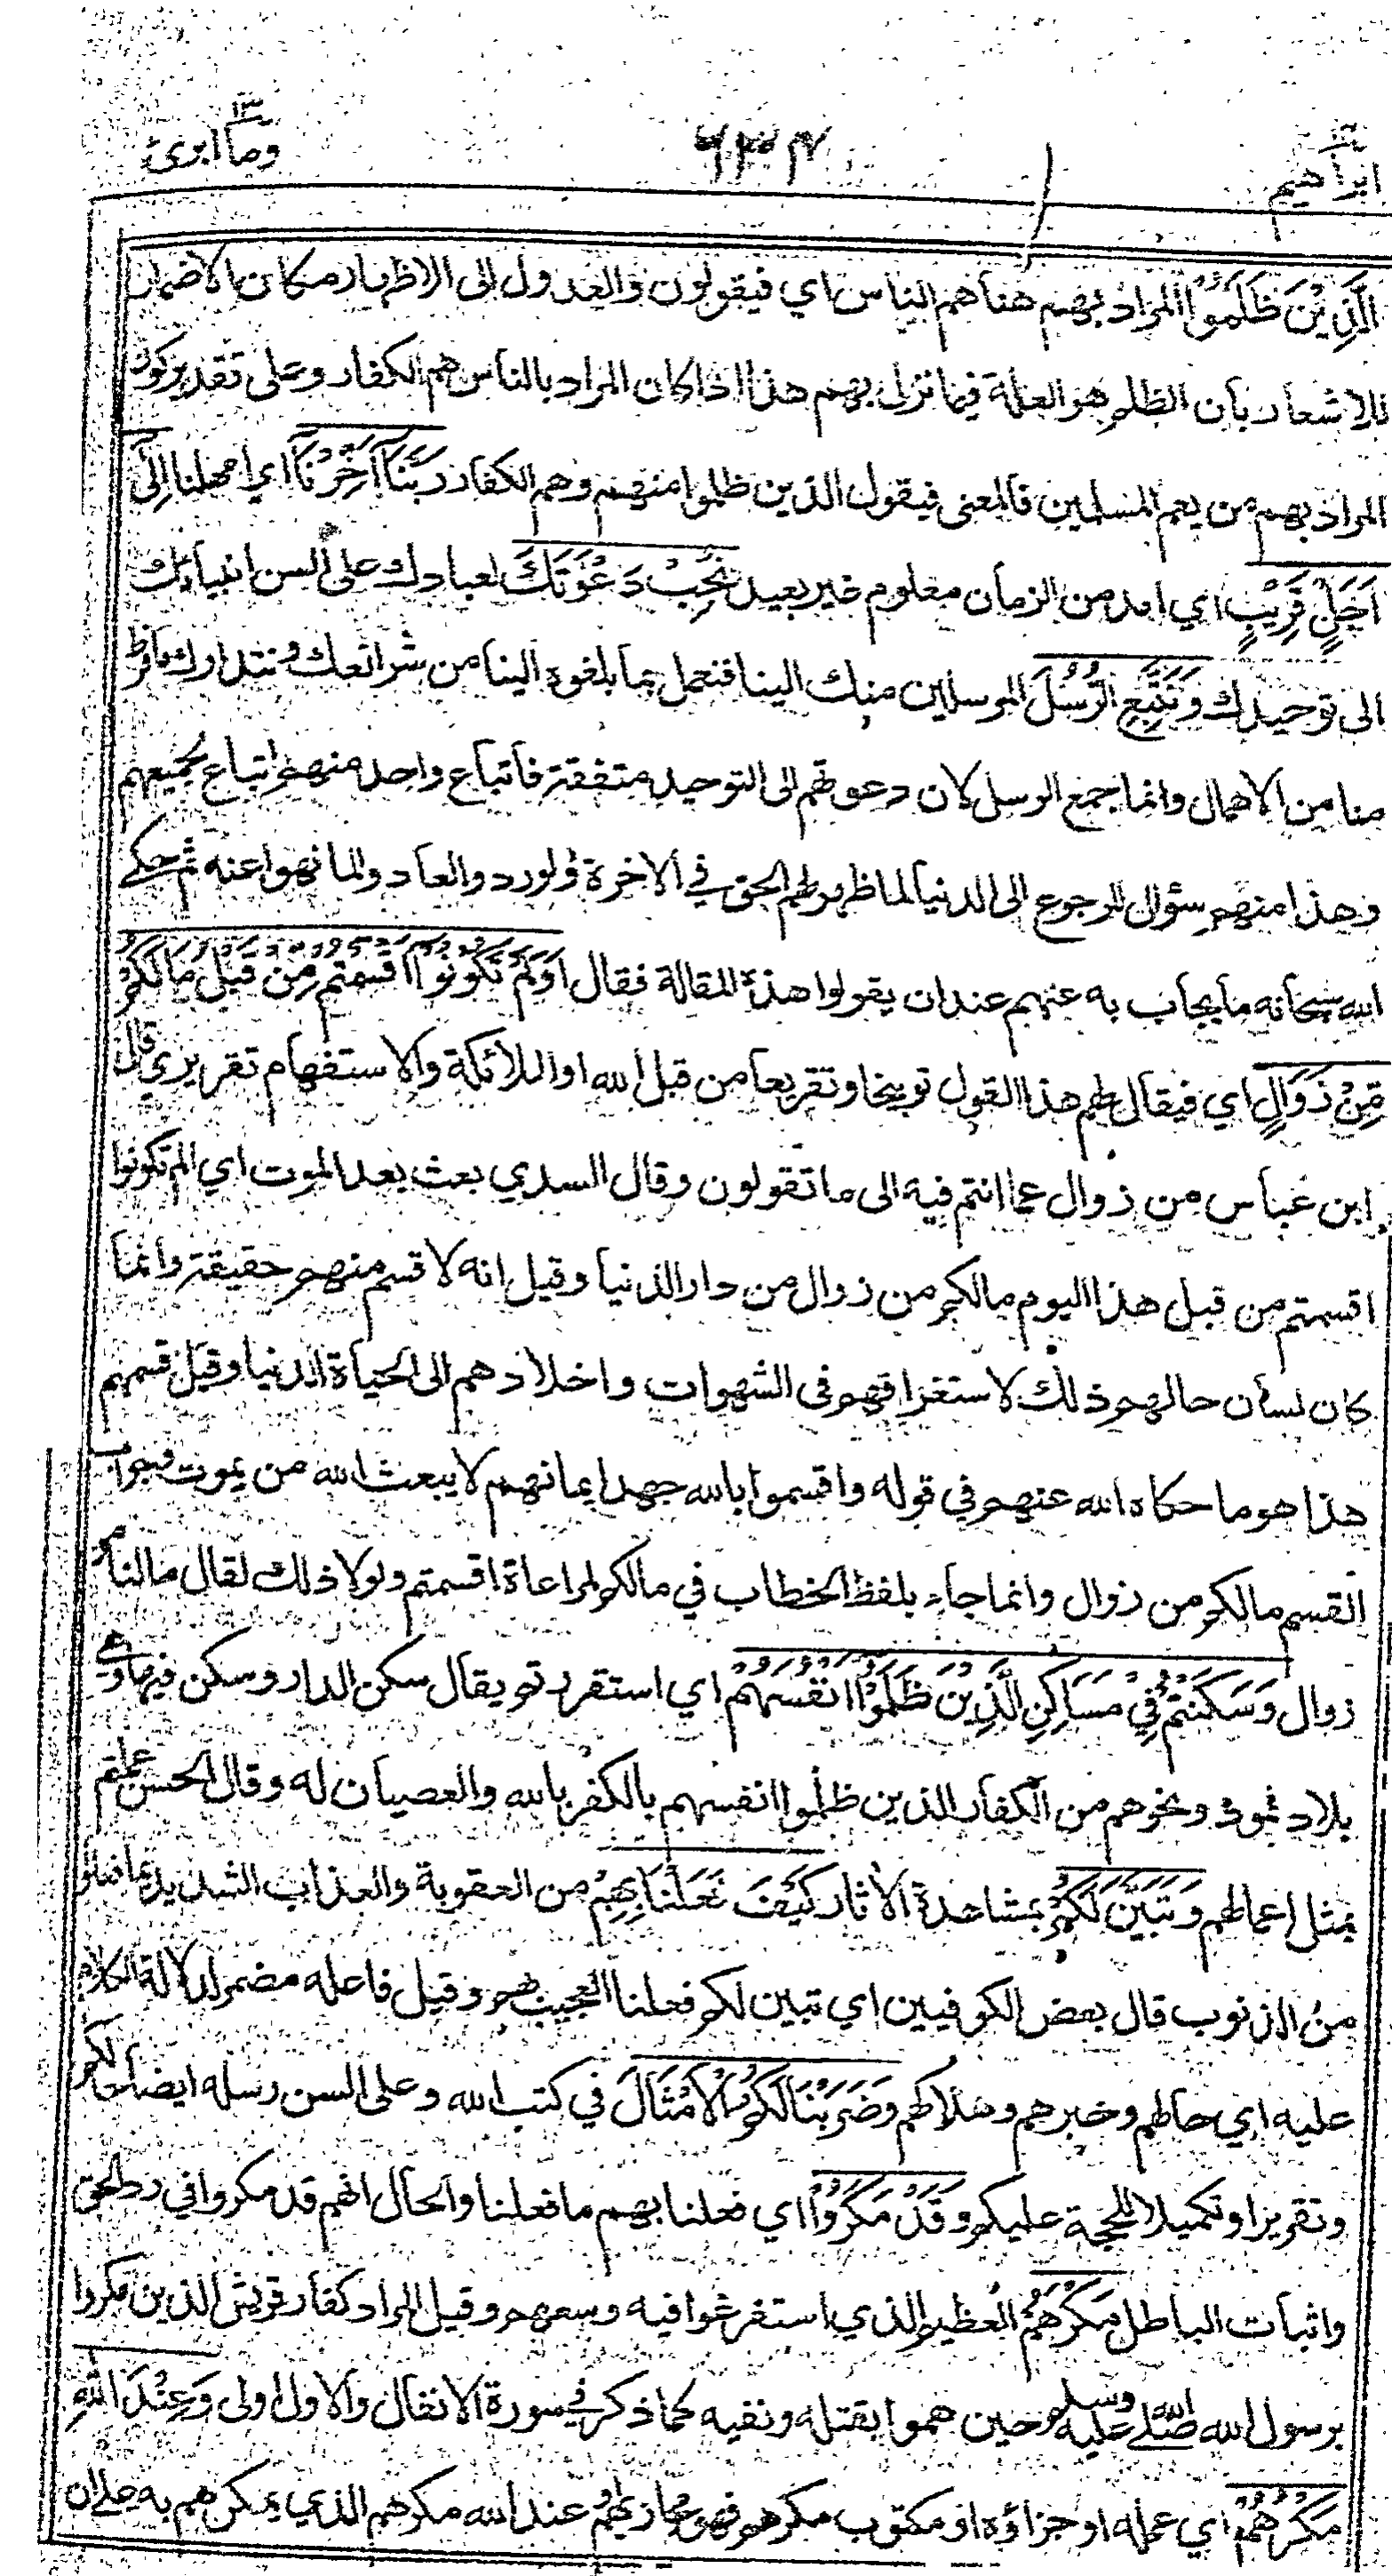 ابراهيم ١٤
٦٣٤
وما ابرئ ١٣
الَّذِيْنَ ظَلَمُوْا المراد بهم هنا هم الناس اي فيقولون والعدول الى الاظهار مكان الاضمار
للاشعار بان الظلم هو العلة فيما نزل بهم هذا اذا كان المراد بالناس هم الكفار وعلى تقدير كون
المراد بهم من يعم المسلمين فالمعنى فيقول الذين ظلموا منهم وهم الكفار رَبَّنَا اَخِّرْنَا اي امهلنا اِلٰى
اَجَلٍ قَرِيْبٍ اي امد من الزمان معلوم غير بعيد نُّجِبْ دَعْوَتَكَ لعبادك على السن انبيائك
الى توحيدك وَنَتَّبِعِ الرُّسُلَ المرسلين منك الينا فنعمل بما بلغوه الينا من شرائعك ونتدارك ما فرط
منا من الاهمال وانما جمع الرسل لان دعوتهم الى التوحيد متفقة فاتباع واحد منهم اتباع لجميعهم
وهذا منهم سؤال للرجوع الى الدنيا لما ظهر لهم الحق في الاخرة ولو ردوا لعادوا لما نهوا عنه ثم حكى
الله سبحانه ما يجاب به عنهم عند ان يقولوا هذه المقالة فقال اَوَلَمْ تَكُوْنُوْا اَقْسَمْتُمْ مِّنْ قَبْلُ مَا لَكُمْ
مِّنْ زَوَالٍ اي فيقال لهم هذا القول توبيخا وتقريعا من قبل الله او الملائكة والاستفهام تقريري قال
ابن عباس من زوال عما انتم فيه الى ما تقولون وقال السدي بعث بعد الموت اي الم تكونوا
اقسمتم من قبل هذا اليوم مالكم من زوال من دار الدنيا وقيل انه لا قسم منهم حقيقة وانما
كان لسان حالهم ذلك لاستغراقهم فى الشهوات واخلادهم الى الحياة الدنيا وقيل قسمهم
هذا هو ما حكاه الله عنهم في قوله واقسموا بالله جهد ايمانهم لا يبعث الله من يموت فجواب
القسم مالكم من زوال وانما جاء بلفظ الخطاب في مالكم لمراعاة اقسمتم ولولا ذلك لقال مالنا من
زوال وَسَكَنْتُمْ فِيْ مَسَاكِنِ الَّذِيْنَ ظَلَمُوْا اَنْفُسَهُمْ اي استقررتم يقال سكن الدار وسكن فيها وهي
بلاد ثمود ونحوهم من الكفار الذين ظلموا انفسهم بالكفر بالله والعصيان له وقال الحسن عملتم
بمثل اعمالهم وَتَبَيَّنَ لَكُمْ بمشاهدة الاثار كَيْفَ فَعَلْنَا بِهِمْ من العقوبة والعذاب الشديد بما فعلوا
من الذنوب قال بعض الكوفيين اي تبين لكم فعلنا العجيب بهم وقيل فاعله مضمر لدلالة الكلام
عليه اي حالهم وخبرهم وهلاكهم وَضَرَبْنَا لَكُمُ الْاَمْثَالَ في كتب الله وعلى السن رسله ايضاحا لكم
وتقريرا وتكميلا للحجة عليكم وَقَدْ مَكَرُوْا اي فعلنا بهم ما فعلنا والحال انهم قد مكروا في رد الحق
واثبات الباطل مَكْرَهُمْ العظيم الذي استفرغوا فيه وسعهم وقيل المراد كفار قريش الذين مكروا
برسول الله صلى الله عليه وسلم حين هموا بقتله ونفيه كما ذكر في سورة الانفال والاول اولى وَعِنْدَ اللّٰهِ
مَكْرُهُمْ اي عمله او جزاؤه او مكتوب مكرهم فهو مجازيهم او عند الله مكرهم الذي يمكرهم به على ان